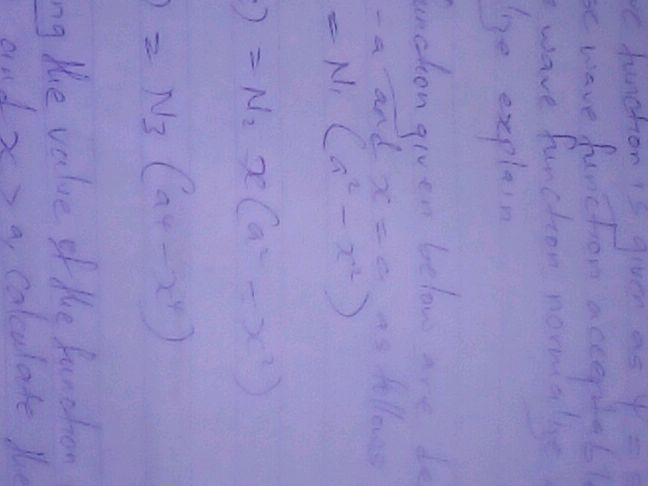 ve function is given as ψ =
se wave function acceptabl
e wave function normalize
ize explain
unction given below are de
-a and x = a as follows
= N₁ (a² - x²)
) = N₂ x(a² - x²)
) = N₃ (a⁴ - x⁴)
ng the value of the function
and x > a, calculate the